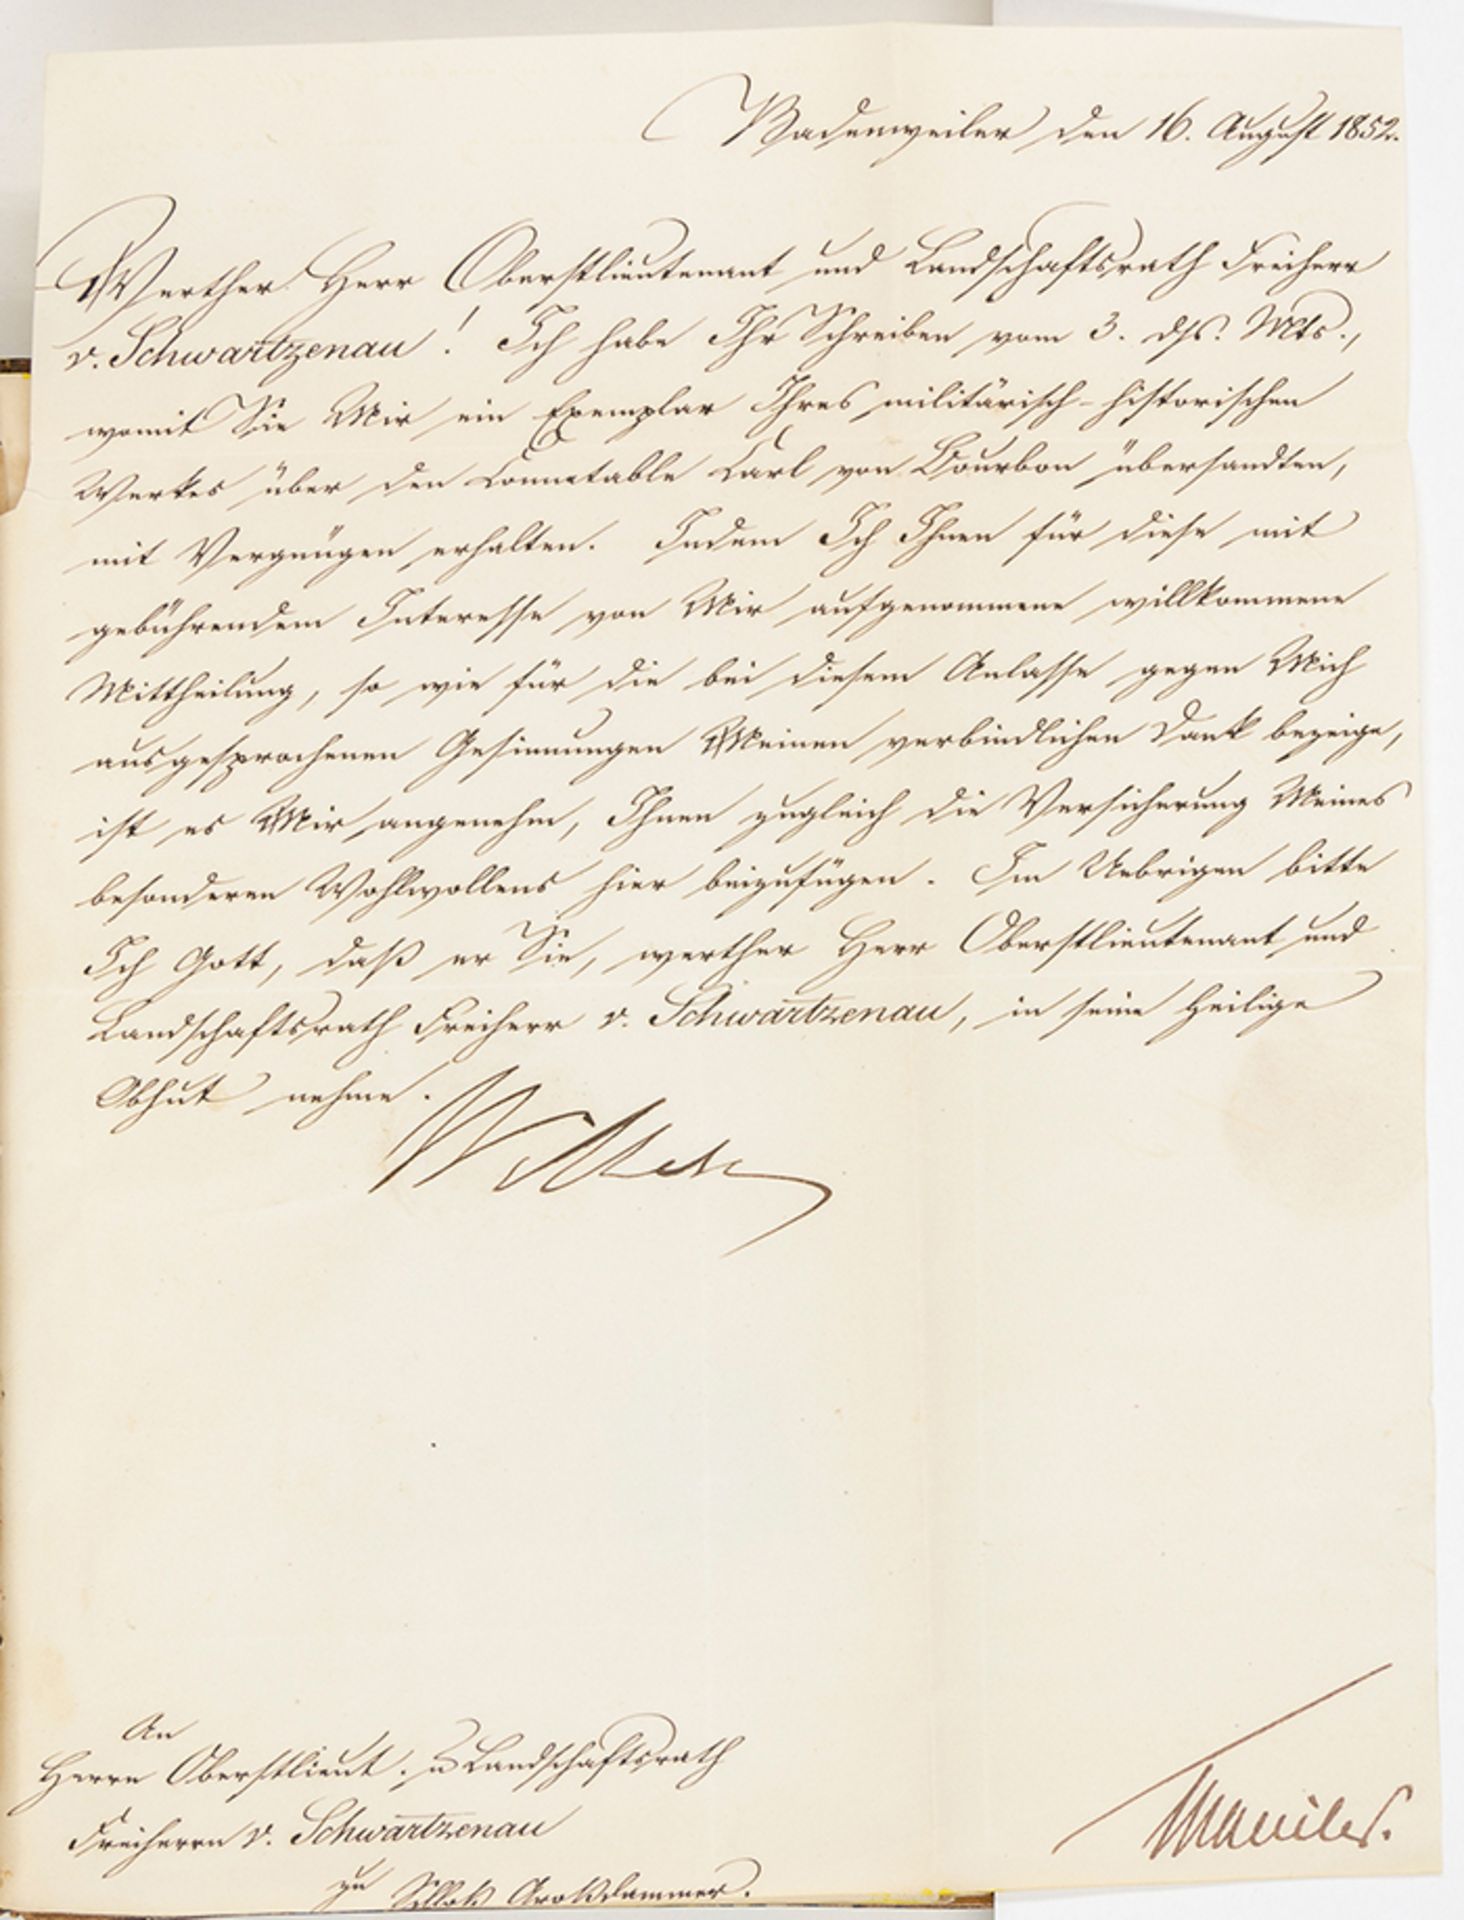 Badenweiler den 16. August 1852.
Werther Herr Oberstlieutenant und Landschaftsrath Freiherr
v. Schwartzenau! Ich habe Ihr Schreiben vom 3. dss. Mts.,
womit Sie Mir ein Exemplar Ihres militärisch-historischen
Werkes über den Connetable Carl von Bourbon übersandten,
mit Vergnügen erhalten. Indem Ich Ihnen für diese mit
gebührendem Interesse von Mir aufgenommene willkommene
Mittheilung, so wie für die bei diesem Anlasse gegen Mich
ausgesprochenen Gesinnungen Meinen verbindlichen Dank bezeige,
ist es Mir angenehm, Ihnen zugleich die Versicherung Meines
besonderen Wohlwollens hier beizufügen. Im Uebrigen bitte
Ich Gott, daß er Sie, werther Herr Oberstlieutenant und
Landschaftsrath Freiherr v. Schwartzenau, in seine heilige
Obhut nehme.
An
Herrn Oberstlieut. u Landschaftsrath
Freiherrn v. Schwartzenau
zu Schloß Großdammer.